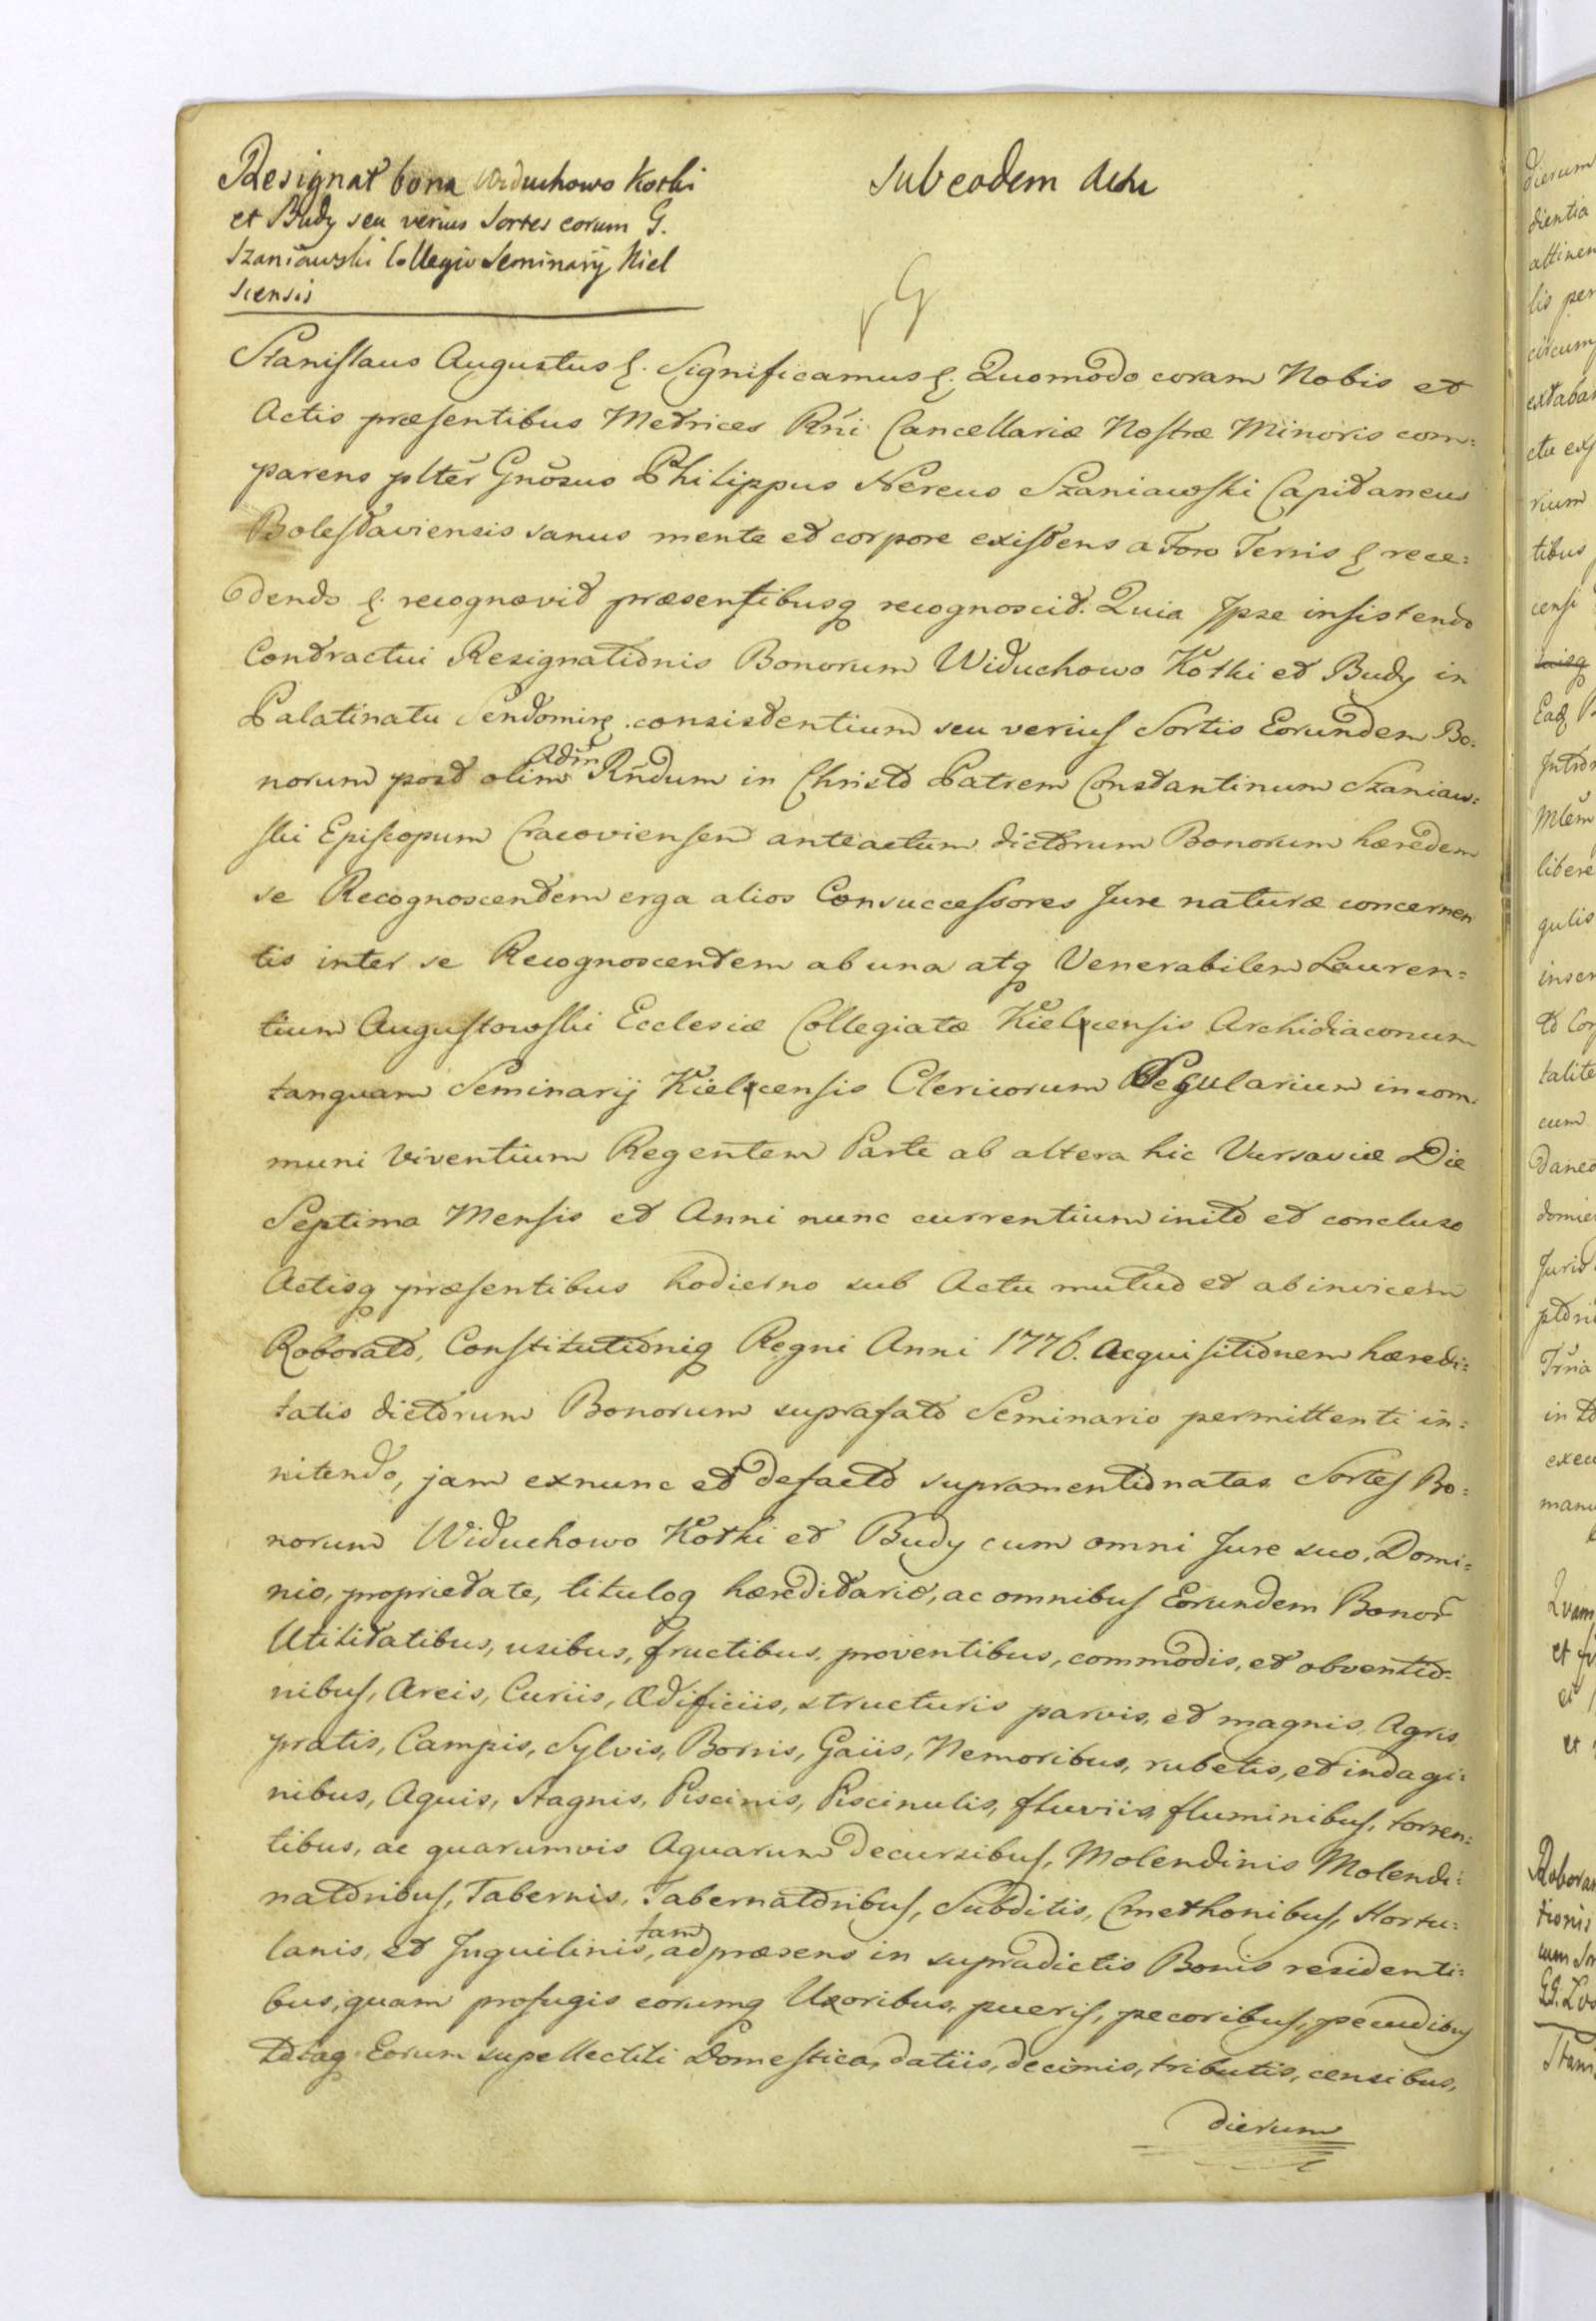 Resignat bona Widuchowo Kotki
et Budy seu verius Sortes eorum G.
Szaniawski Collegio Seminarij Kiel
scensis
Sub eodem Actu
Stanislaus Augustus &. Significamus &. Quomodo coram Nobis et
Actis præsentibus Metrices Rñi Cancellariæ Nostræ Minoris com=
parens plter Gnosus Philippus Nereus Szaniawski Capitaneus
Boleslaviensis sanus mente et corpore existens a Foro Terris & rece=
dendo &. recognovit præsentibusq recognoscit. Quia Ipse insistendo
Contractui Resignationis Bonorum Widuchowo Kotki et Budy in
Palatinatu Sendomir. consistentium seu verius Sortis Eorundem Bo=
norum post olim Adm Rndum in Christo Patrem Constantinum Szaniaw=
ski Episcopum Cracoviensem anteactum dictorum Bonorum hæredem
se Recognoscentem erga alios Consuccessores Jure naturæ concernen
tis inter se Recognoscentem ab una atq Venerabilem Lauren=
tium Augustowski Ecclesiæ Collegiatæ Kielcensis Archidiaconum
tanquam Seminarij Kielcensis Clericorum Regularium in com=
muni viventium Regentem Parte ab altera hic Varsaviæ Die
Septima Mensis et Anni nunc currentium inito et concluso
Actisq præsentibus hodierno sub Actu mutuo et ab invicem
Roborato, Constitutioniq Regni Anni 1776. Acquisitionem hæredi=
tatis dictorum Bonorum suprafato Seminario permittenti in=
nitendo, jam exnunc et defacto supramentionatas Sortes Bo=
norum Widuchowo Kotki et Budy cum omni Jure suo, Domi=
nio, proprietate, tituloq hæreditario, ac omnibus Eorundem Bonor
Utilitatibus, usibus, fructibus, proventibus, commodis, et obventio=
nibus, Areis, Curiis, Ædificiis, structuris parvis, et magnis, Agris
pratis, Campis, Sylvis, Borris, Gaiis, Nemoribus, rubetis, et indagi=
nibus, Aquis, Stagnis, Piscinis, Piscinulis, fluviis, fluminibus, torren=
tibus, ac quarumvis Aquarum Decursibus, Molendinis Molendi=
natoribus, Tabernis, Tabernatoribus, Subditis, Cmethonibus, Hortu=
lanis, et Inquilinis, tam ad præsens in supradictis Bonis residenti=
bus, quam profugis eorumq Uxoribus, pueris, pecoribus, pecudibus
totaq Eorum supellectili Domestica, datiis, decimis, tributis, censibus,
dierum